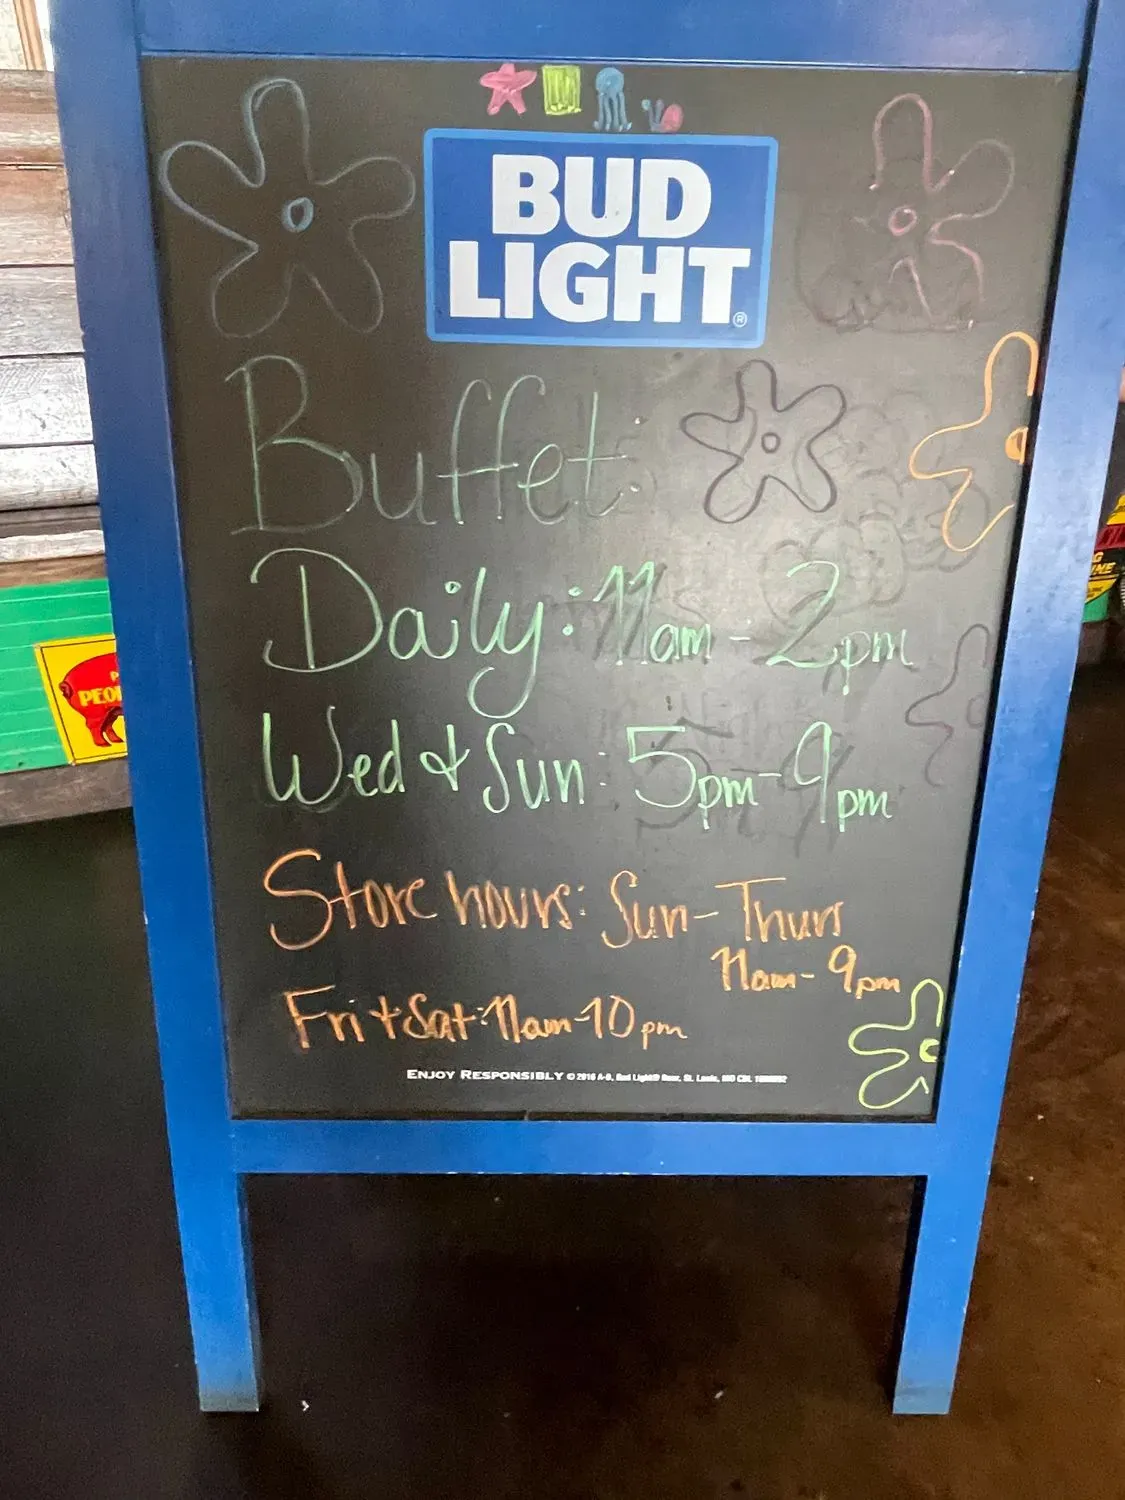 BUD
LIGHT®
Buffet:
Daily: 11am - 2pm
Wed & Sun: 5pm - 9pm
Store hours: Sun - Thurs
11am - 9pm
Fri + Sat: 11am - 10pm
ENJOY RESPONSIBLY © 2016 A-B, Bud Light® Beer, St. Louis, MO
PEO